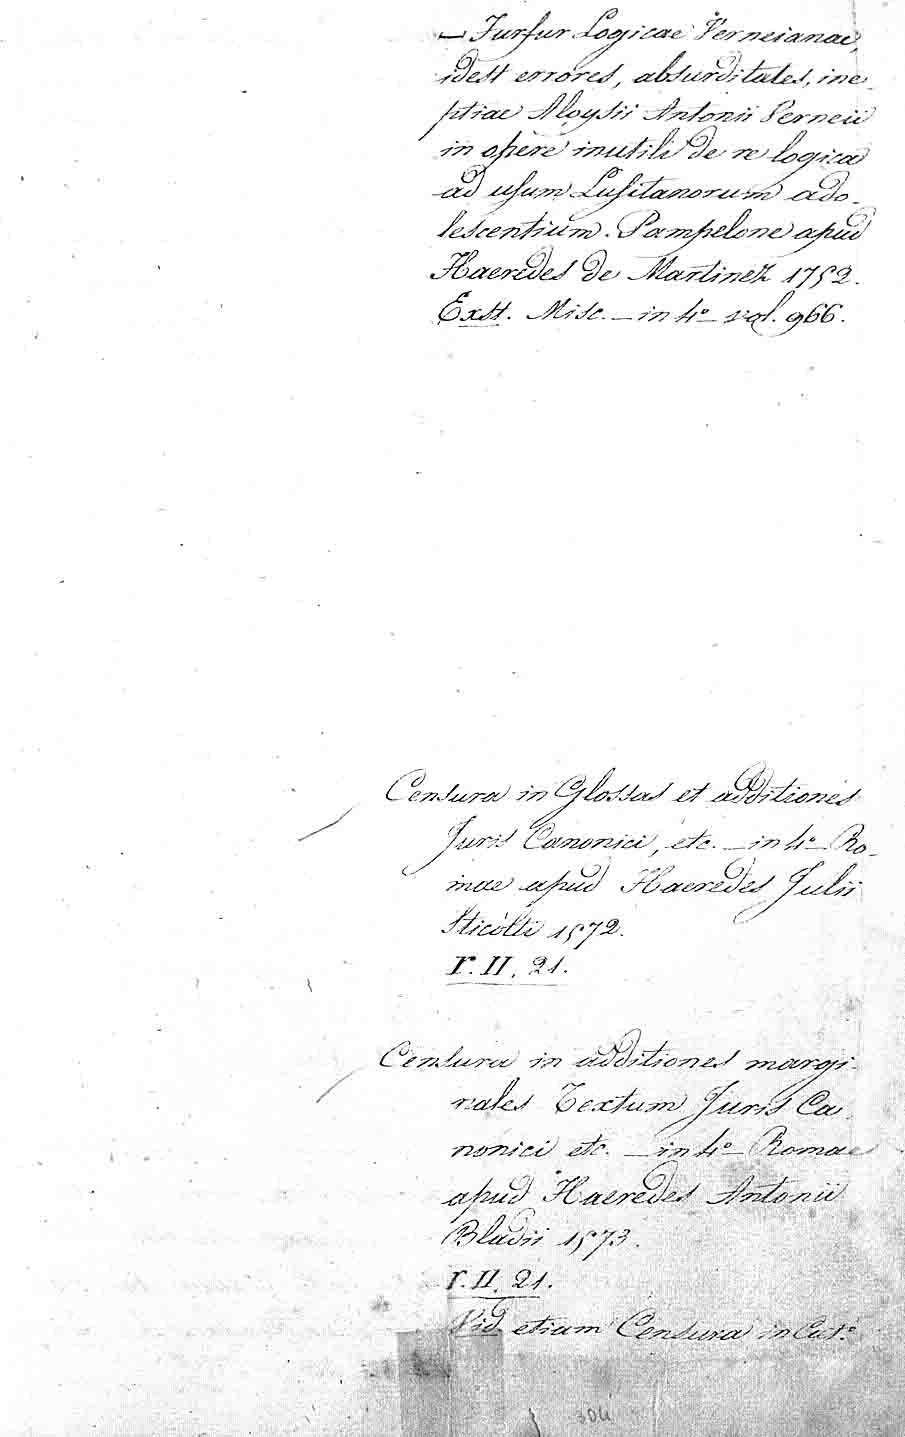 — Furfur Logicae Verneianae,
idest errores, absurditates, ine-
ptiae Aloysii Antonii Verneii
in opere inutili de re logica
ad usum Lusitanorum ado-
lescentium. Pampelone apud
Haeredes de Martinez 1752.
Exst. Misc. — in 4º — vol. 966.
Censura in Glossas et additiones
Juris Canonici, etc. — in 4º — Ro-
mae apud Haeredes Julii
1572.
r. II. 21.
Censura in additiones margi-
nales Textum Juris Ca-
nonici etc. — in 4º — Romae
apud Haeredes Antonii
Bladii 1573.
r. II. 21.
Vid. etiam Censura in Cat.º
304